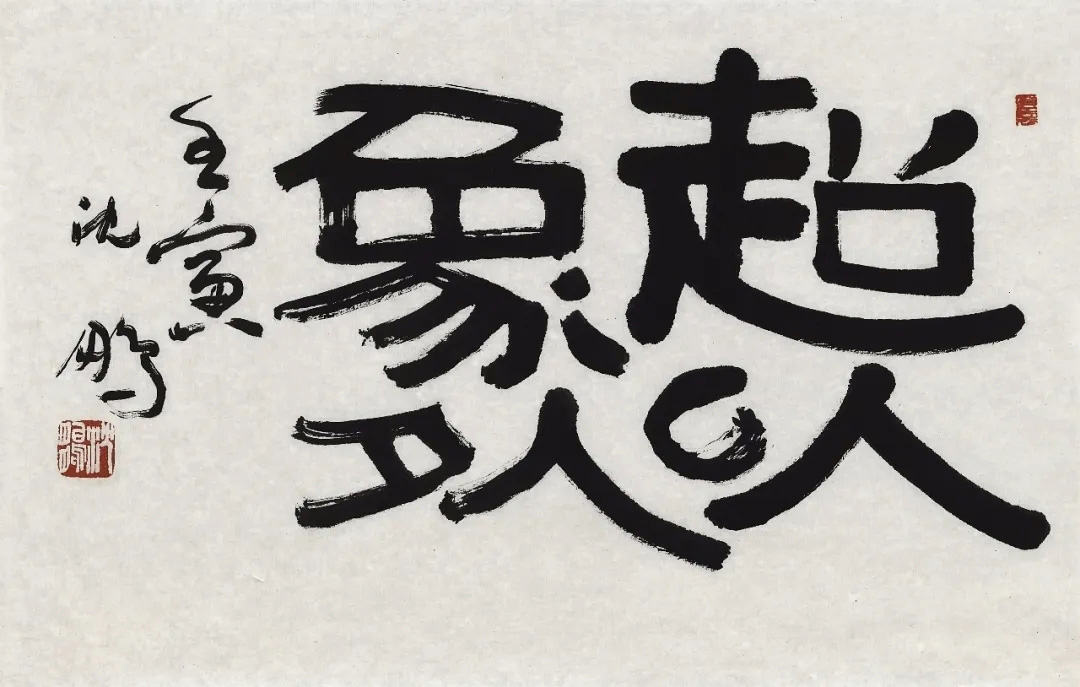 超以
象外
壬寅
沈鹏
沈鹏